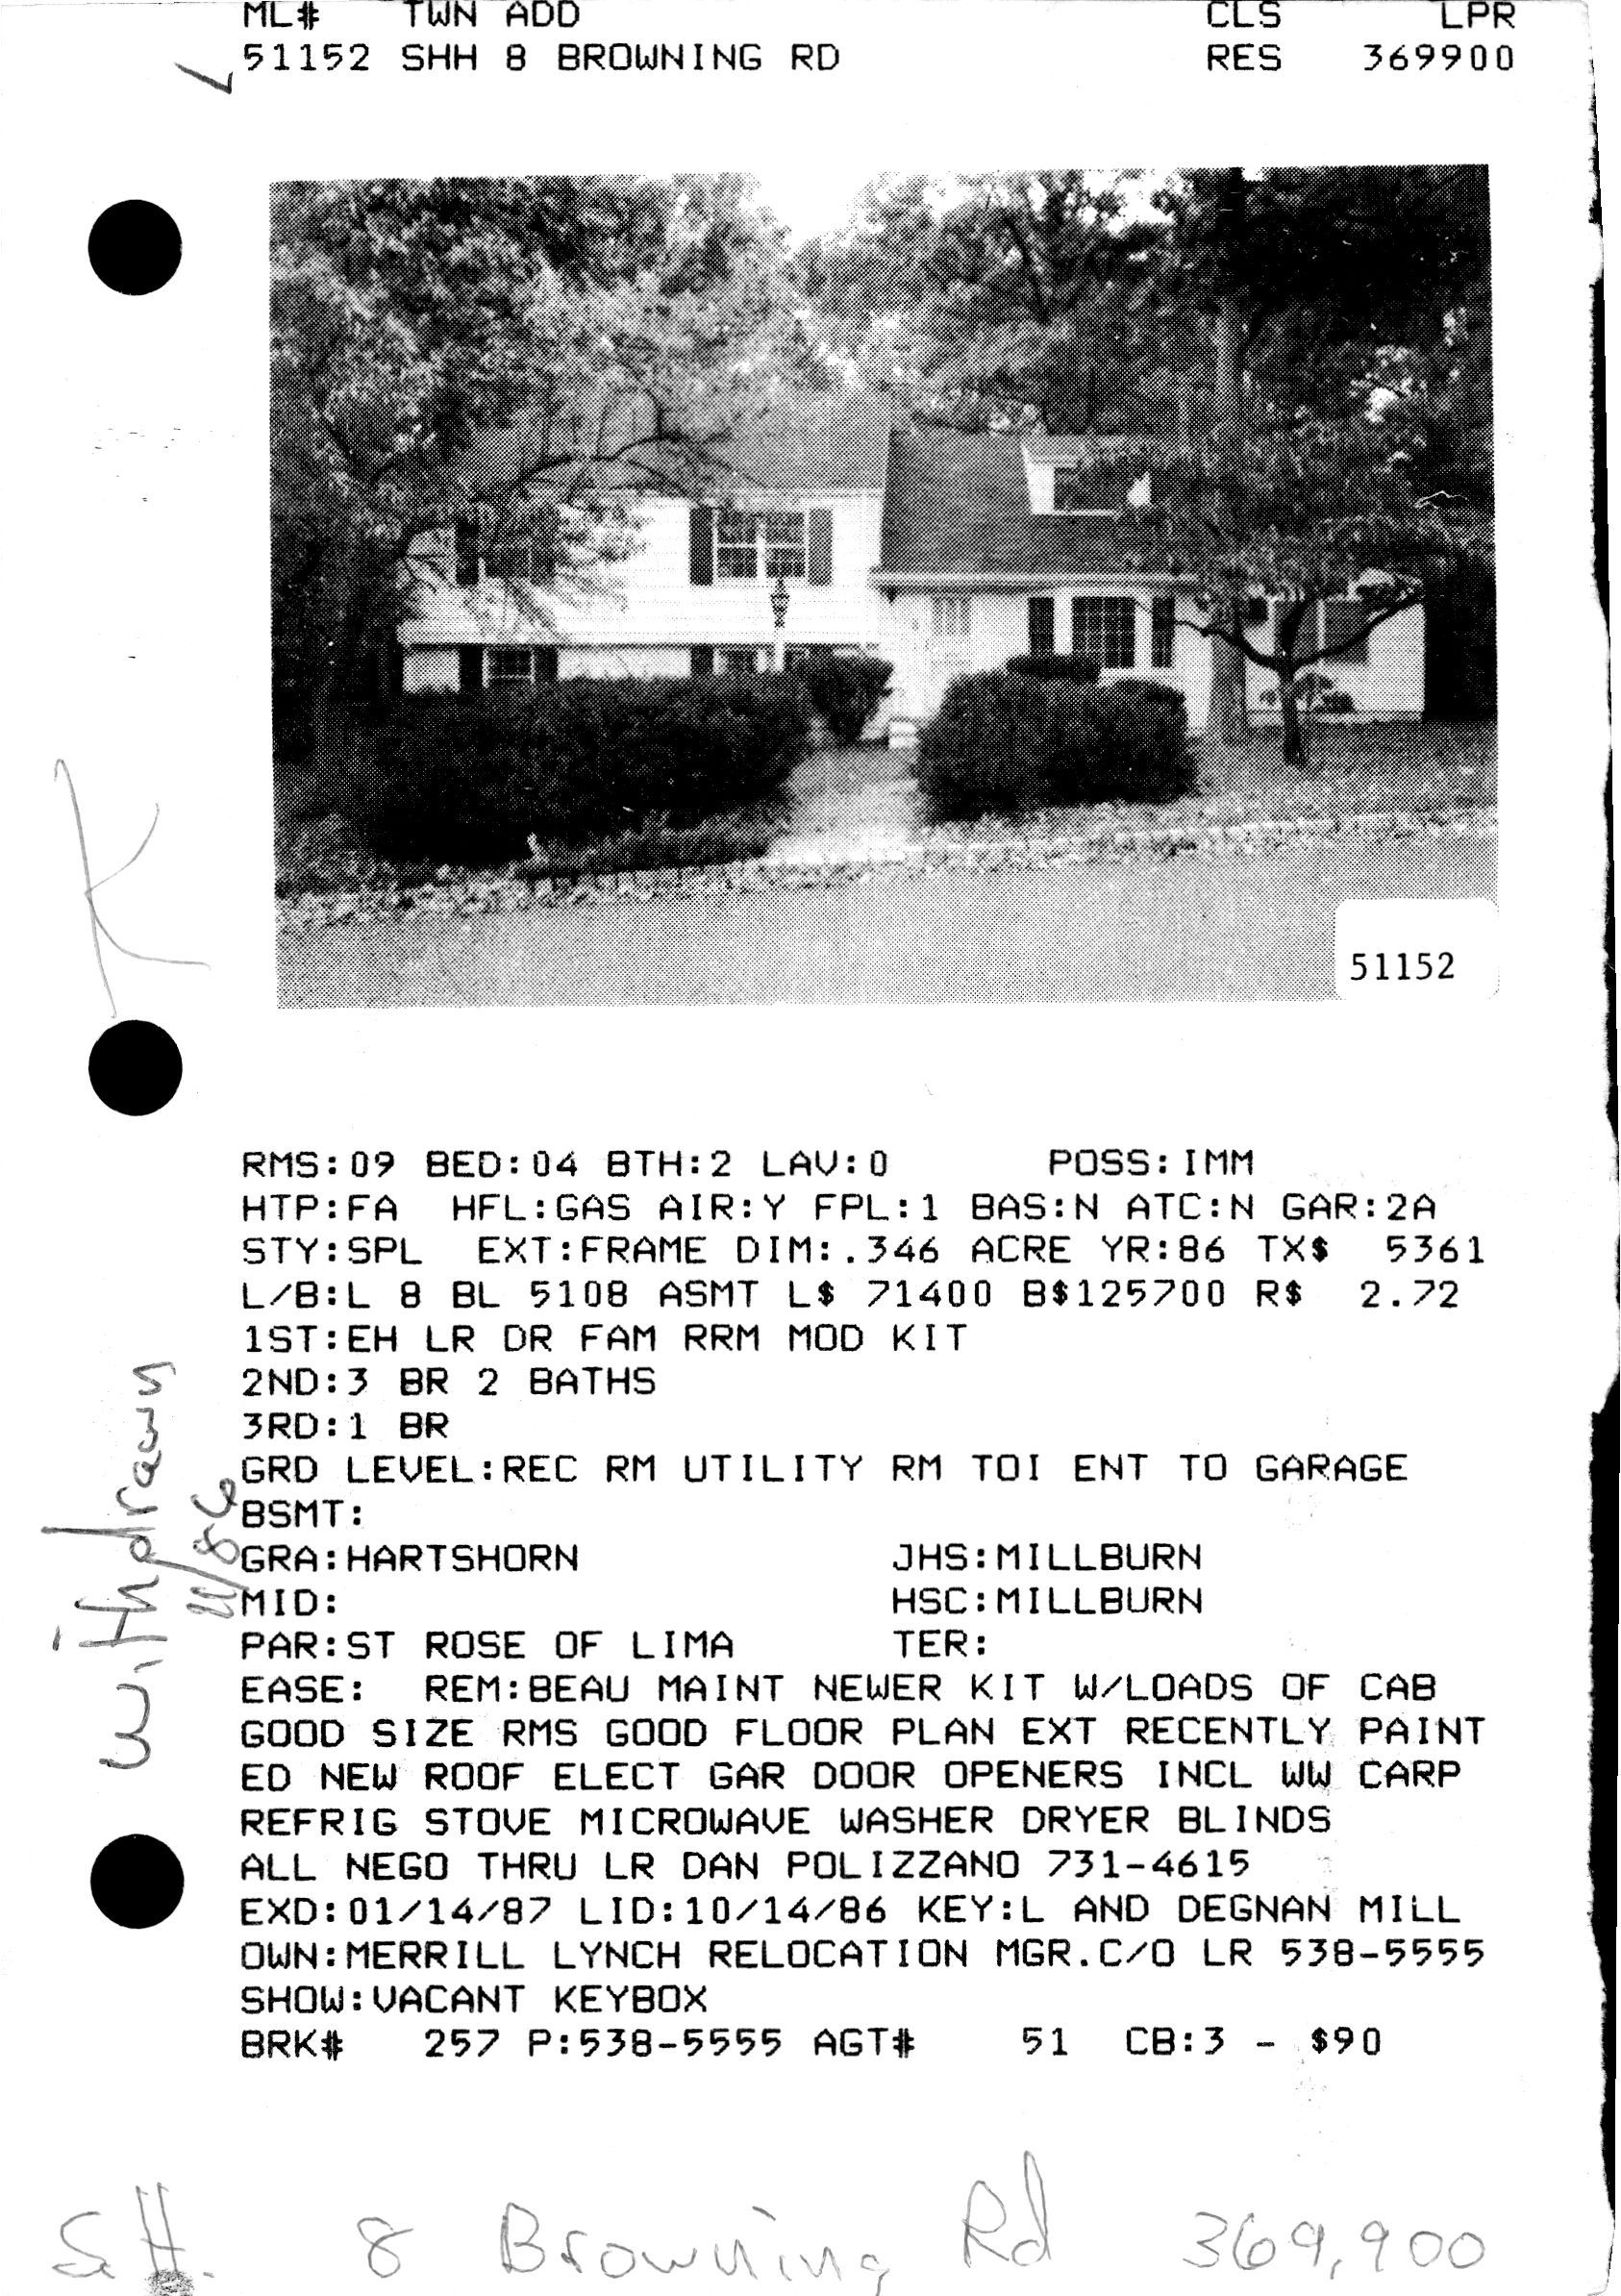 ML# TWN ADD CLS LPR
51152 SHH 8 BROWNING RD RES 369900
51152
RMS:09 BED:04 BTH:2 LAV:0 POSS:IMM
HTP:FA HFL:GAS AIR:Y FPL:1 BAS:N ATC:N GAR:2A
STY:SPL EXT:FRAME DIM:.346 ACRE YR:86 TX$ 5361
L/B:L 8 BL 5108 ASMT L$ 71400 B$125700 R$ 2.72
1ST:EH LR DR FAM RRM MOD KIT
2ND:3 BR 2 BATHS
3RD:1 BR
GRD LEVEL:REC RM UTILITY RM TOI ENT TO GARAGE
BSMT:
GRA:HARTSHORN JHS:MILLBURN
MID: HSC:MILLBURN
PAR:ST ROSE OF LIMA TER:
EASE: REM:BEAU MAINT NEWER KIT W/LOADS OF CAB
GOOD SIZE RMS GOOD FLOOR PLAN EXT RECENTLY PAINT
ED NEW ROOF ELECT GAR DOOR OPENERS INCL WW CARP
REFRIG STOVE MICROWAVE WASHER DRYER BLINDS
ALL NEGO THRU LR DAN POLIZZANO 731-4615
EXD:01/14/87 LID:10/14/86 KEY:L AND DEGNAN MILL
OWN:MERRILL LYNCH RELOCATION MGR.C/O LR 538-5555
SHOW:VACANT KEYBOX
BRK# 257 P:538-5555 AGT# 51 CB:3 - $90
withdrawn
11/86
K
S.H. 8 Browning Rd 369,900